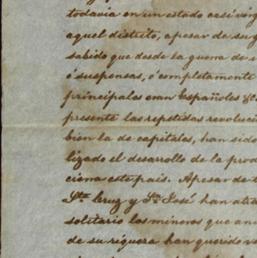 todavia en un estado casi virg
aquel distrito, apesar de su g
sabido que desde la guerra de
ó suspensas, ó completamente
principales eran Españoles
presente las repetidas revoluci
bien la de capitales, han sido
lizado el desarrollo de la prod
ciona este pais. Apesar de
Sta. Cruz y Sn. José han atra
solitario los mineros que an
de su riquera han querido